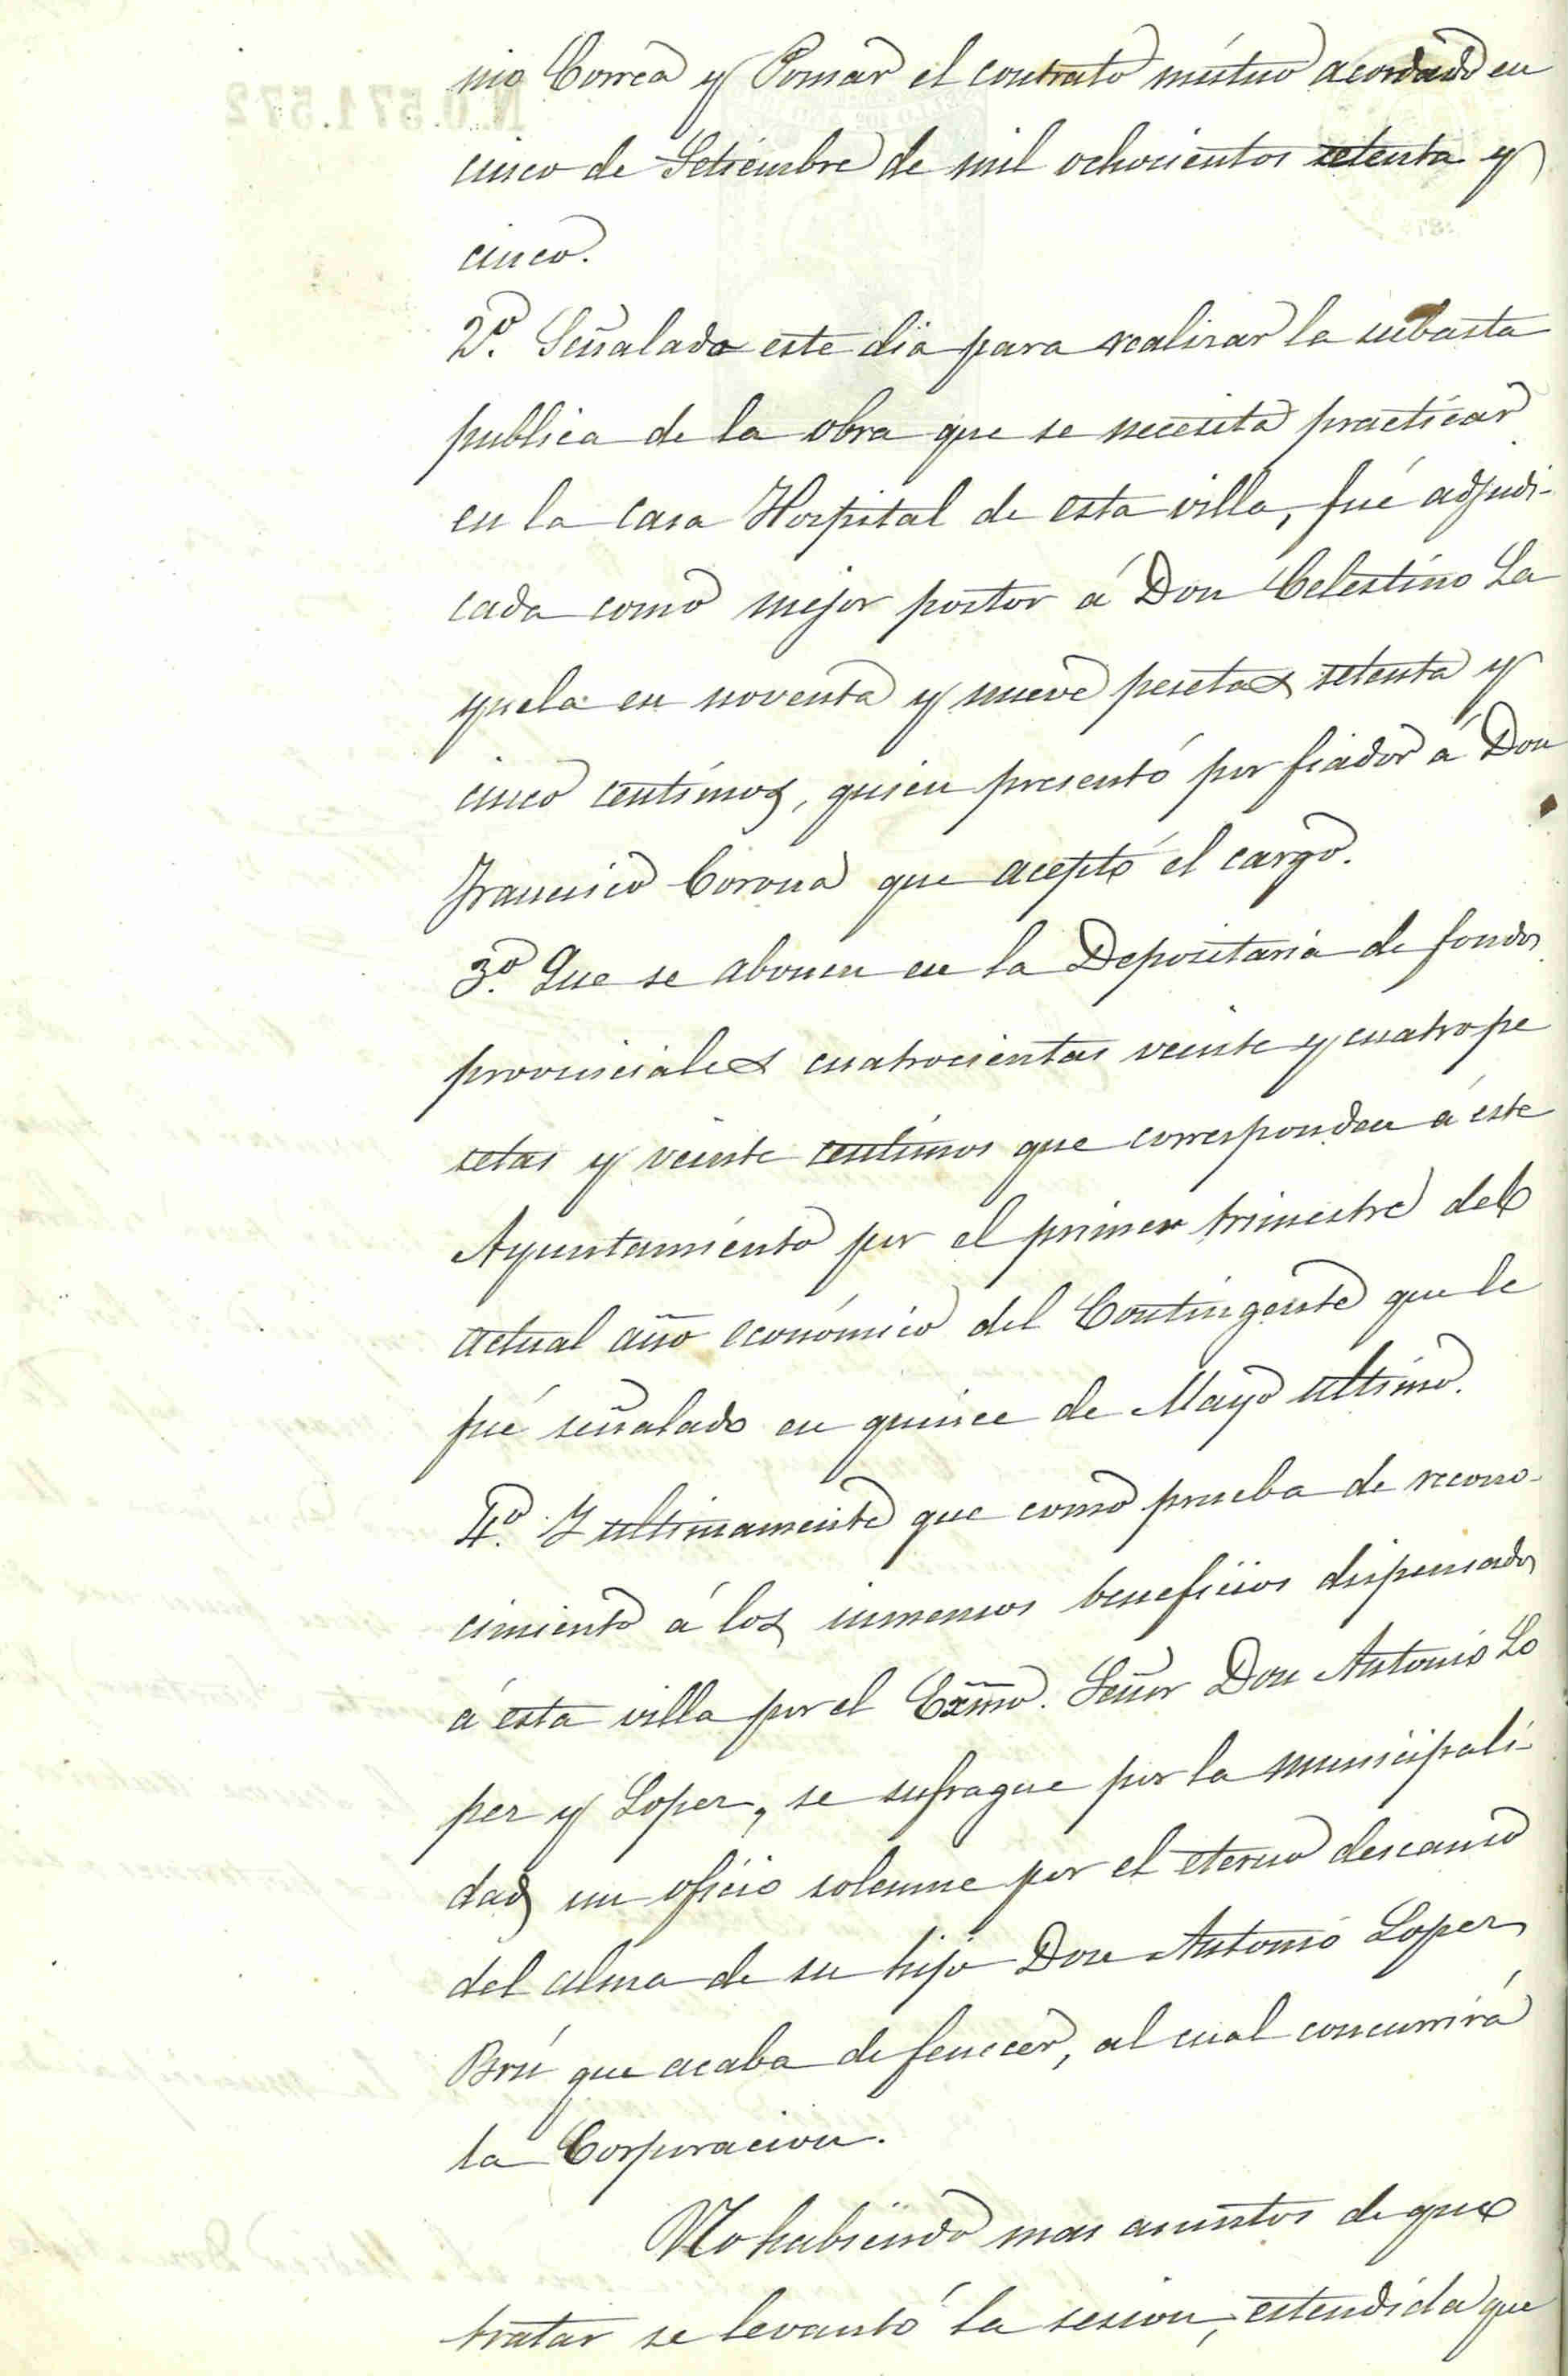 nio Correa y Pomar el contrato mútuo acordado en
cinco de Setiembre de mil ochocientos setenta y
cinco.
2º. Señalado este dia para realizar la subasta
publica de la obra que se necesita practicar
en la casa Hospital de esta villa, fué adjudi-
cada como mejor postor á Don Celestino La
yuela en noventa y nueve pesetas setenta y
cinco centimos, quien presentó por fiador á Don
Francisco Corona que aceptó el cargo.
3º. Que se abonen en la Depositaria de fondos
provinciales cuatrocientas veinte y cuatro pe
setas y veinte centimos que corresponden á este
Ayuntamiento por el primer trimestre del
actual año económico del Contingente que le
fué señalado en quince de Mayo ultimo.
4º. Y ultimamente que como prueba de recono-
cimiento á los inmensos beneficios dispensados
á esta villa por el Exmo. Señor Don Antonio Lo
pez y Lopez, se sufrague por la municipali-
dad un oficio solemne por el eterno descanso
del alma de su hijo Don Antonio Lopez
Brú que acaba de fenecer, al cual concurrirá
la Corporacion.
No habiendo mas asuntos de que
tratar se levantó la sesion, estendida que
N.0.571.572